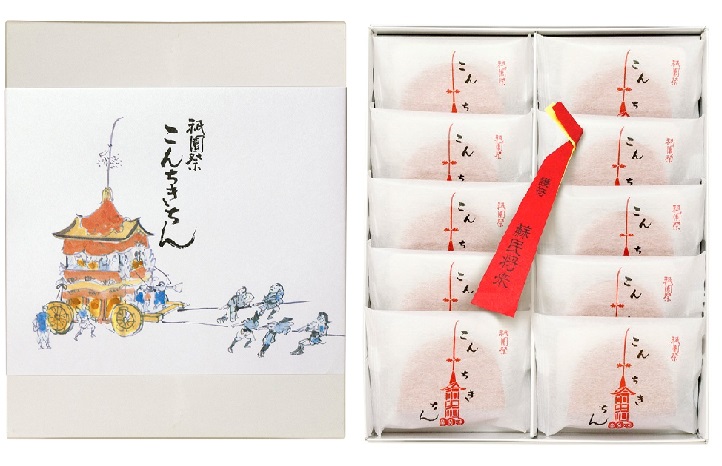 祇園祭
こんちきちん
祇園祭
こんち
祇園祭
こんち
祇園祭
こんち
祇園祭
こんち
祇園祭
こんち
祇園祭
こんち
祇園祭
こんち
祇園祭
こんち
祇園祭
こんちきちん
祇園祭
こんちきちん
護符
蘇民将来